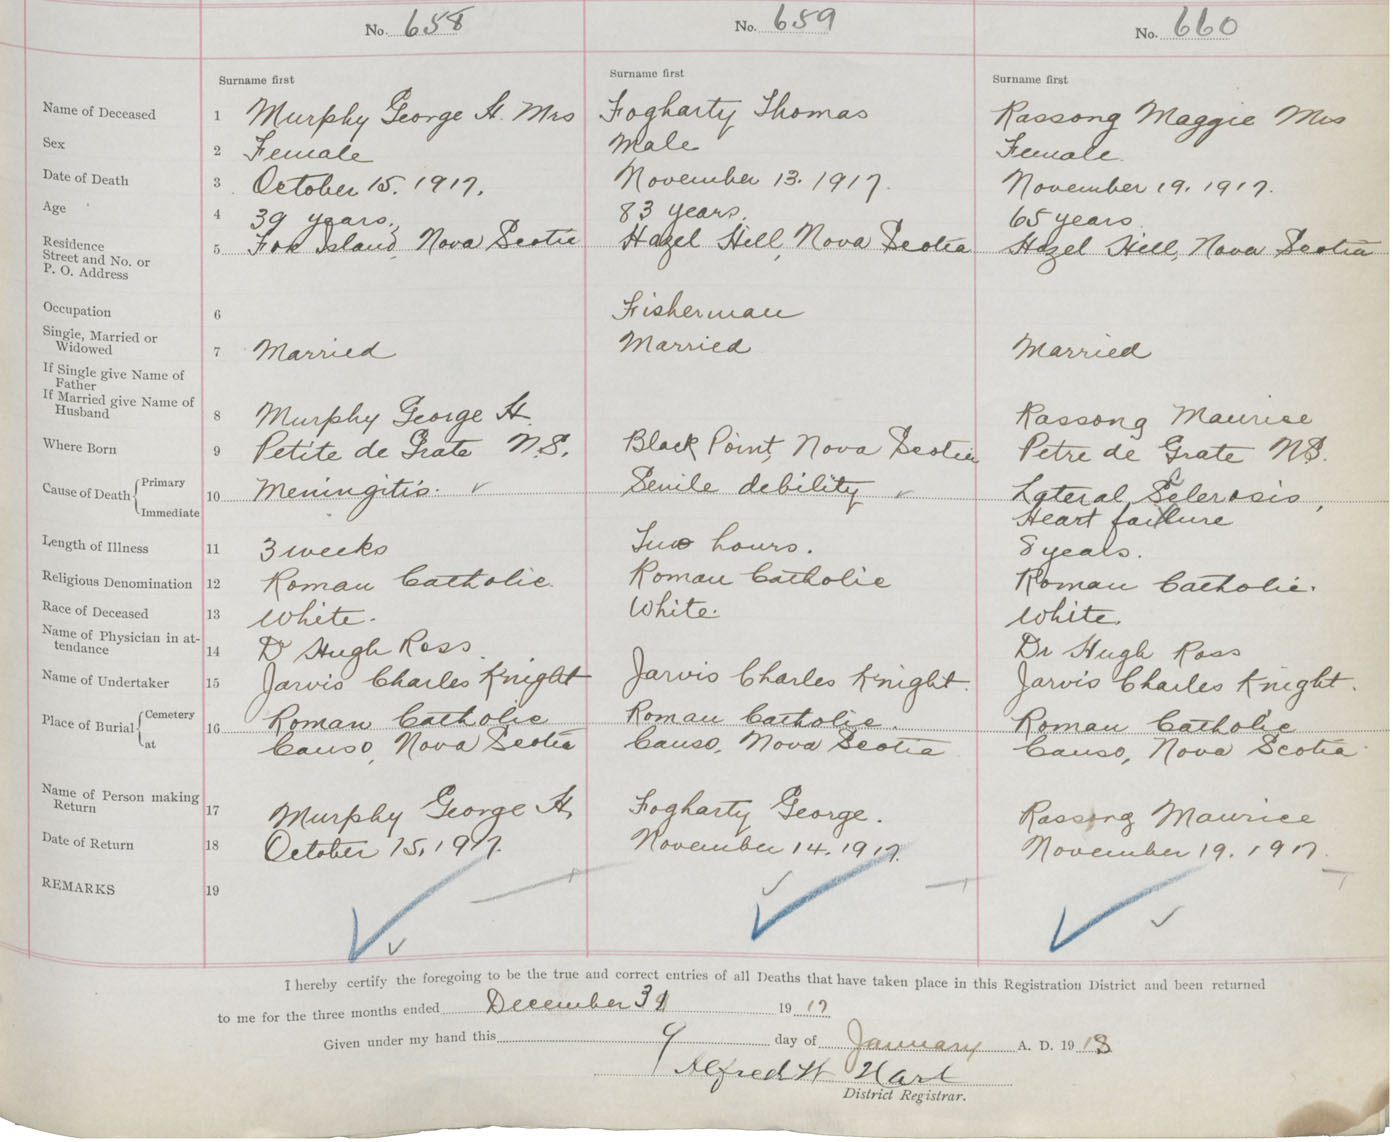 No. 658 No. 659 No. 660
Surname first Surname first Surname first
Name of Deceased 1 Murphy George H. Mrs Fogharty Thomas Rassong Maggie Mrs
Sex 2 Female Male Female.
Date of Death 3 October 15. 1917. November 13. 1917. November 19. 1917.
Age 4 39 years. 83 years. 65 years
Residence
Street and No. or 5 Fox Island, Nova Scotia Hazel Hill, Nova Scotia Hazel Hill, Nova Scotia
P. O. Address
Occupation 6 Fisherman
Single, Married or
Widowed 7 Married Married Married
If Single give Name of
Father
If Married give Name of
Husband 8 Murphy George H. Rassong Maurice
Where Born 9 Petite de Grate N.S. Black Point, Nova Scotia Petre de Grate N.S.
Cause of Death Primary 10 Meningitis. Senile debility Lateral Sclerosis,
Immediate Heart failure
Length of Illness 11 3 weeks Two hours. 8 years.
Religious Denomination 12 Roman Catholic. Roman Catholic Roman Catholic.
Race of Deceased 13 White. White. White.
Name of Physician in at-
tendance 14 Dr Hugh Ross. Dr Hugh Ross
Name of Undertaker 15 Jarvis Charles Knight Jarvis Charles Knight. Jarvis Charles Knight.
Place of Burial Cemetery 16 Roman Catholic Roman Catholic. Roman Catholic
at Canso, Nova Scotia Canso, Nova Scotia Canso, Nova Scotia
Name of Person making
Return 17 Murphy George H. Fogharty George. Rassong Maurice
Date of Return 18 October 15, 1917. November 14. 1917. November 19. 1917.
REMARKS 19
I hereby certify the foregoing to be the true and correct entries of all Deaths that have taken place in this Registration District and been returned
to me for the three months ended December 31 19 17
Given under my hand this 9 day of January A. D. 19 18
Alfred W Hart
District Registrar.